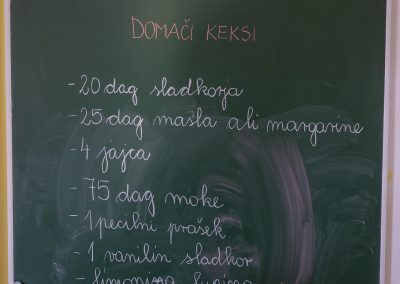 DOMAČI KEKSI
- 20 dag sladkorja
- 25 dag masla ali margarine
- 4 jajca
- 75 dag moke
- 1 pecilni prašek
- 1 vanilin sladkor
- limonina lupina